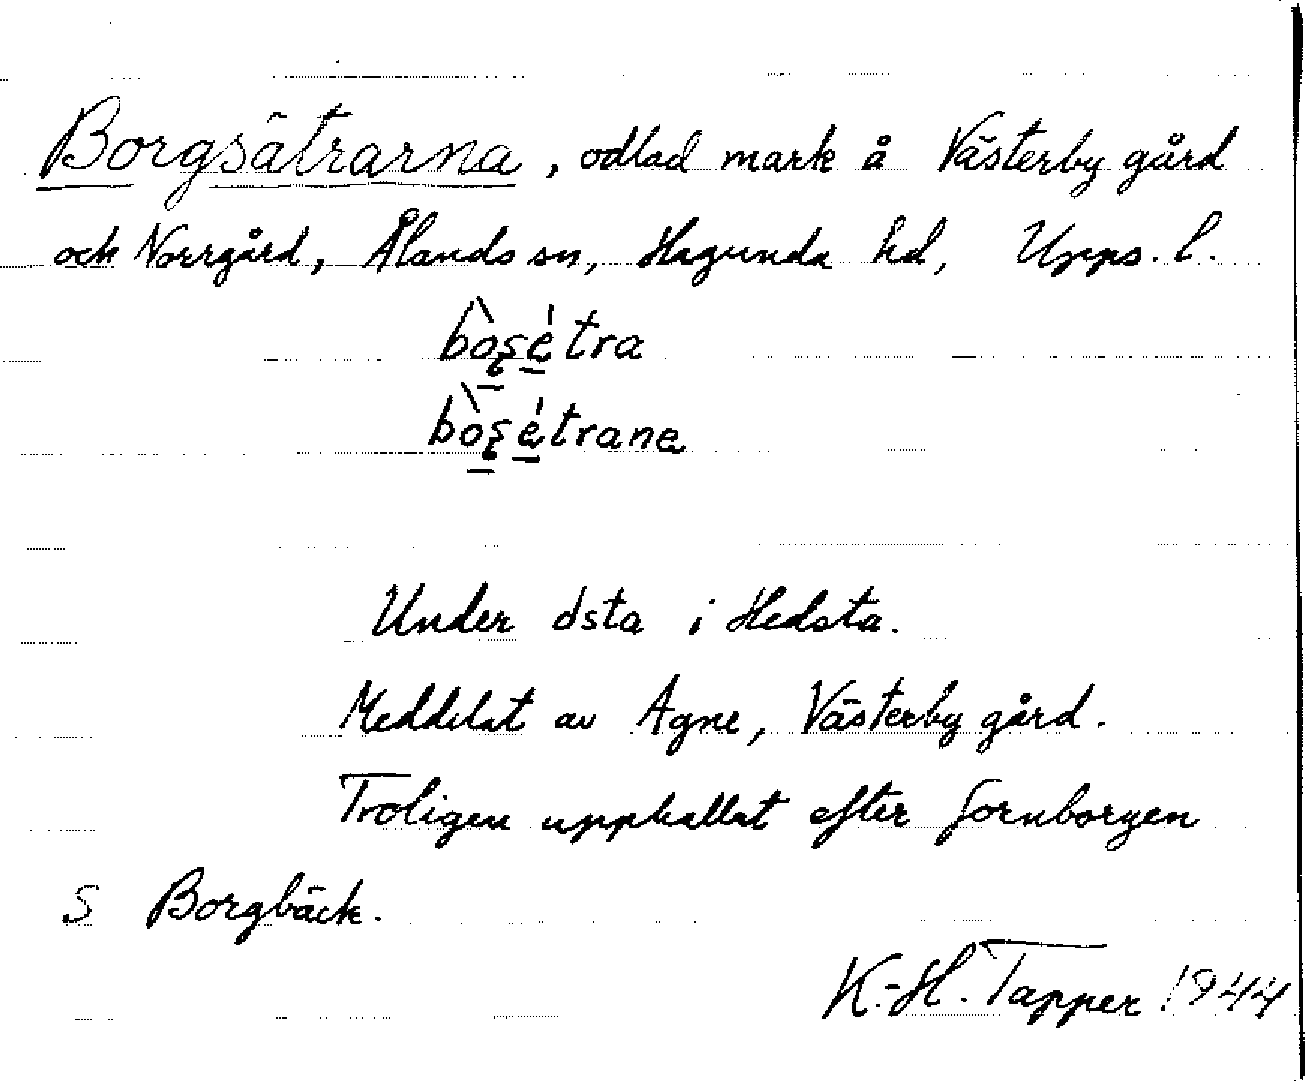 Borgsätrarna, odlad mark å Västerby gård
och Norrgård, Ålands sn, Hagunda hd, Upps. l.
bòsétra
bòsétrane
Under dsta i Hedsta.
Meddelat av Agne, Västerby gård.
Troligen uppkallat efter fornborgen
S Borgbäck.
K.-H. Tapper 1944